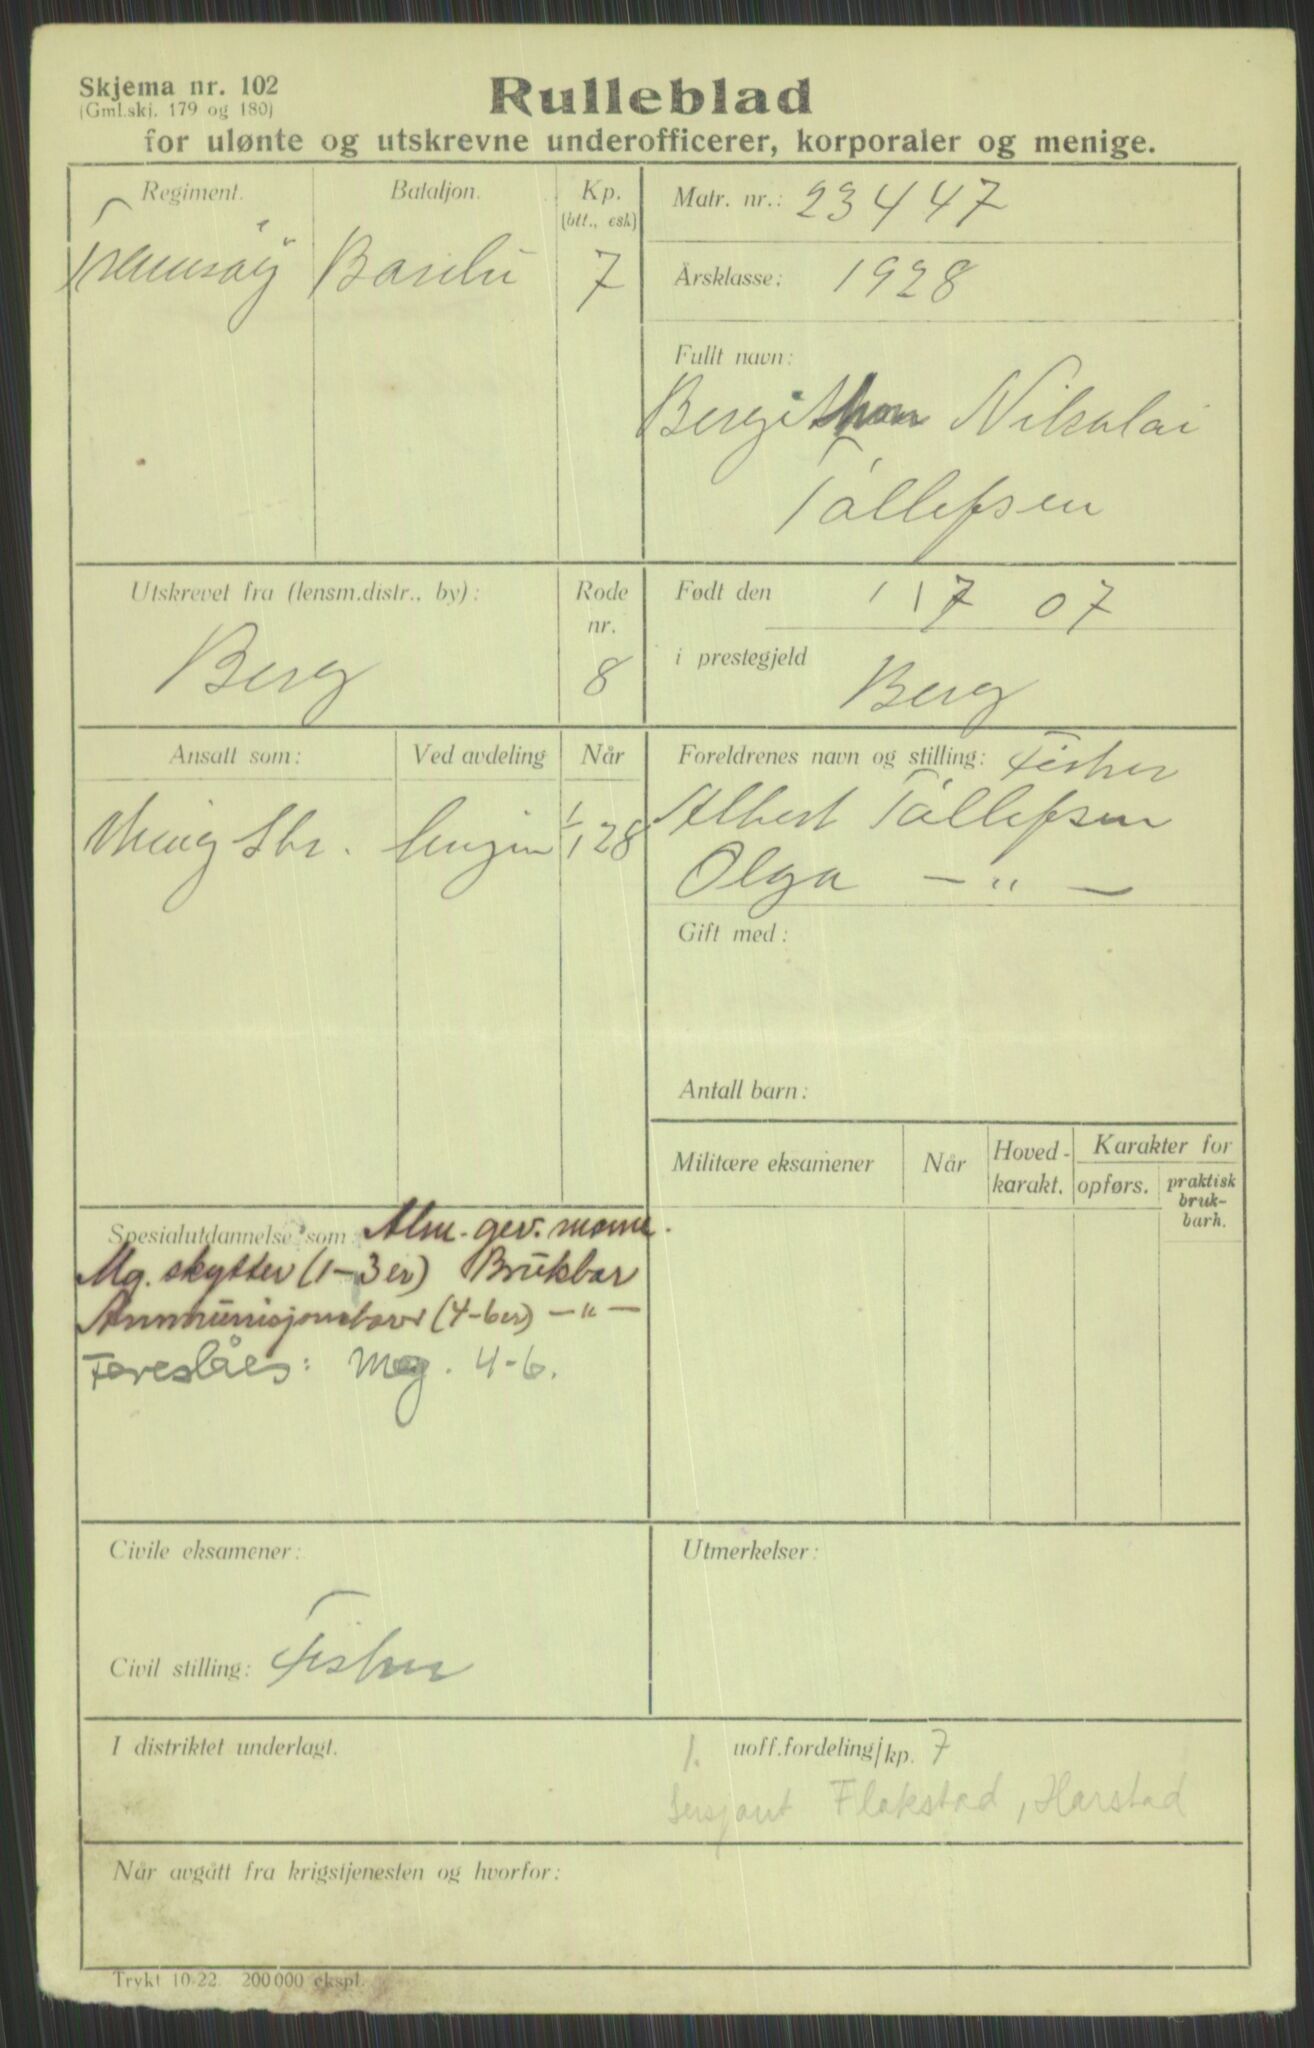 Skjema nr. 102
(Gml.skj. 179 og 180)
Rulleblad
for ulønte og utskrevne underofficerer, korporaler og menige.
Regiment. Bataljon. Kp. (btt., esk)
7
Matr. nr.: 23447
Årsklasse: 1928
Fullt navn:
Nikolai
Tollefsen
Utskrevet fra (lensm.distr., by): Rode nr.
Berg 8
Født den 07
i prestegjeld Berg
Ansatt som: Ved avdeling Når
Menig 1/1 28
Foreldrenes navn og stilling: Fisker
Albert Tollefsen
Olga — " —
Gift med:
Antall barn:
Militære eksamener Når Hoved-karakt. Karakter for
opførs. praktisk bruk-barh.
Spesialutdannelse som: Alm. gev. mann.
Mg. skytter (1-3er) Brukbar
Ammunisjonsbærer (4-6er) — " —
Foreslåes: Mg. 4-6.
Civile eksamener:
Utmerkelser:
Civil stilling: Fisker
I distriktet underlagt.
1. uoff.fordeling/kp. 7
Sersjant Flakstad, Harstad
Når avgått fra krigstjenesten og hvorfor:
Trykt 10-22. 200 000 ekspl.